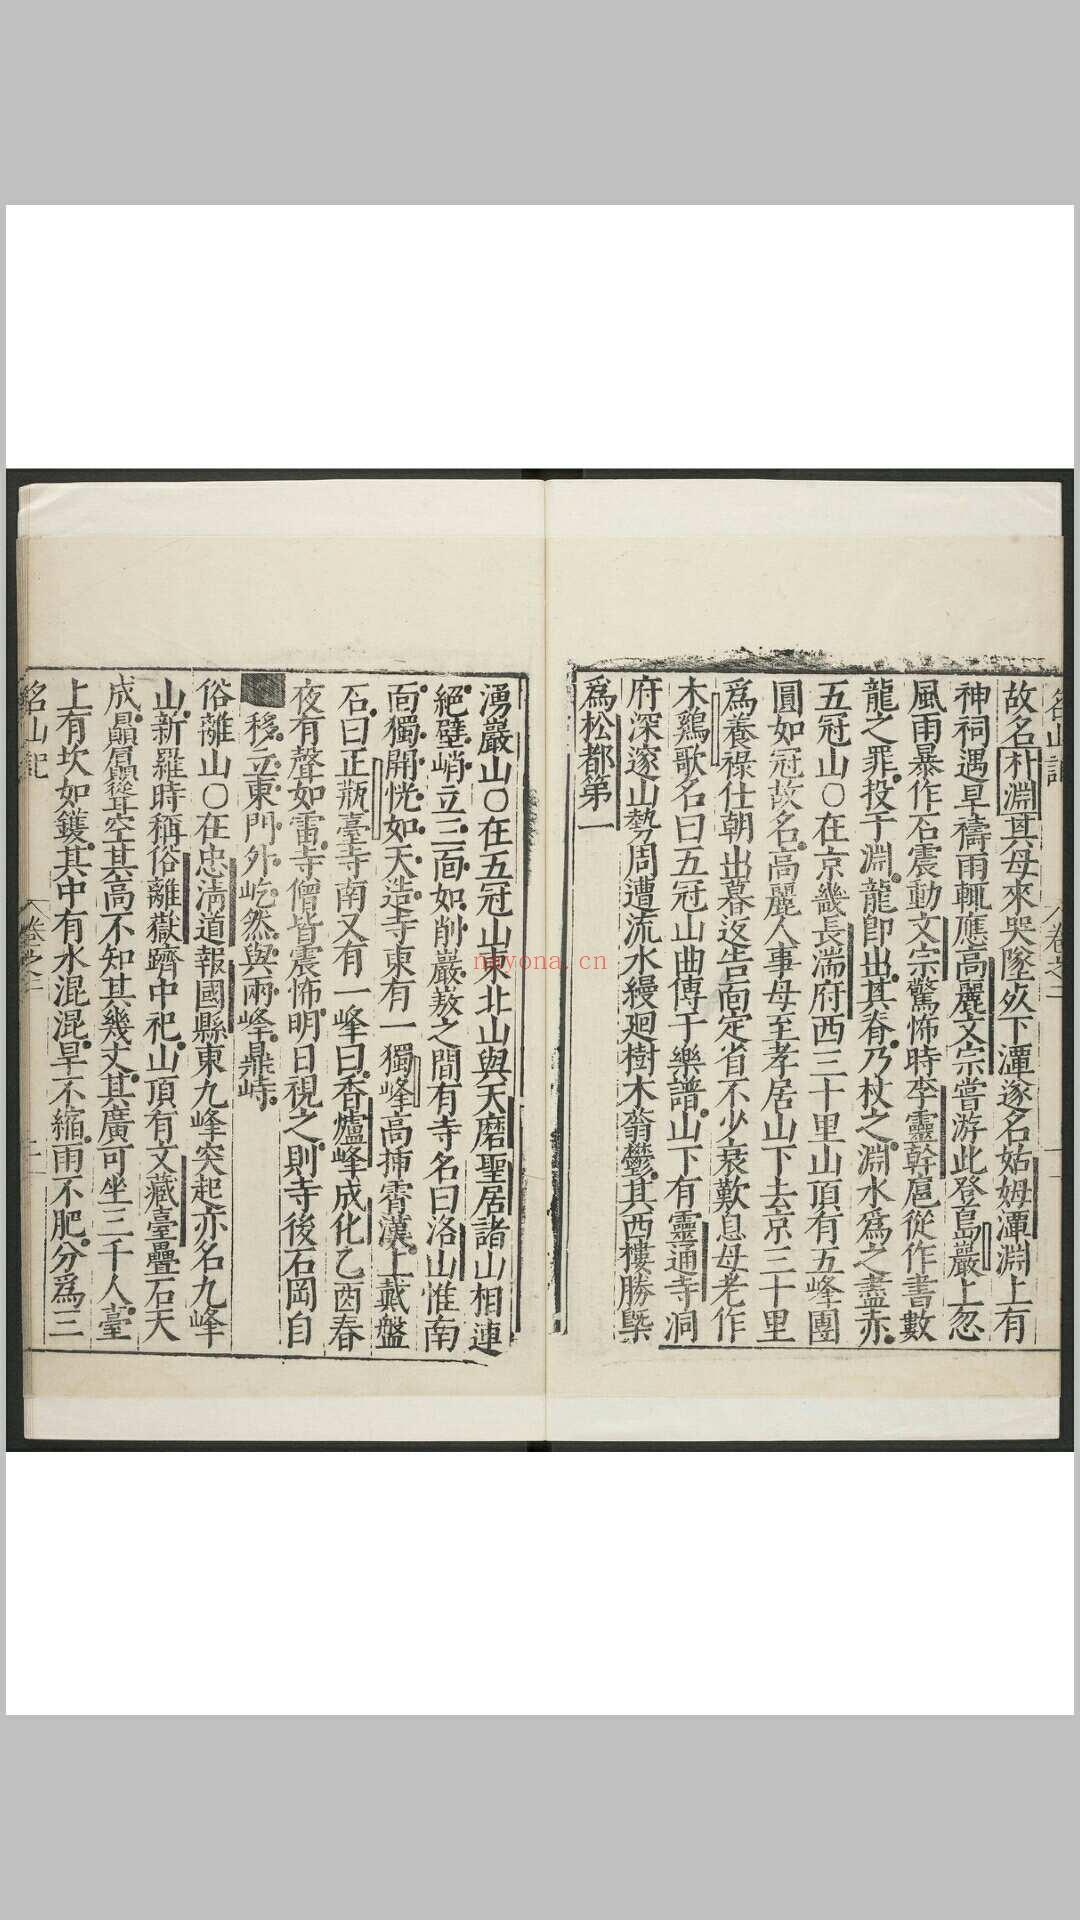 名山記 卷之二
故名朴淵其母來哭墜必下潭遂名姑姆潭淵上有
神祠遇旱禱雨輒應高麗文宗嘗游此登島巖上忽
風雨暴作石震動文宗驚怖時李靈幹扈從作書數
龍之罪投于淵龍卽出其脊乃杖之淵水爲之盡赤
五冠山○在京畿長湍府西三十里山頂有五峰團
圓如冠故名高麗人事母至孝居山下去京三十里
爲養祿仕朝出暮返告面定省不少衰歎息母老作
木鷄歌名曰五冠山曲傳于樂譜山下有靈通寺洞
府深邃山勢周遭流水縵廻樹木蓊鬱其西樓勝槩
爲松都第一
湧巖山○在五冠山東北山與天磨聖居諸山相連
絕壁峭立三面如削巖嶔之間有寺名曰洛山惟南
面獨開恍如天造寺東有一獨峰高揷霄漢上戴盤
石曰正甁臺寺南又有一峰曰香爐峰成化乙酉春
夜有聲如雷寺僧皆震怖明日視之則寺後石岡自
移立東門外屹然與兩峰鼎峙
俗離山○在忠清道報國縣東九峰突起亦名九峰
山新羅時稱俗離嶽躋中祀山頂有文藏臺疊石天
成贔屭聳空其高不知其幾丈其廣可坐三千人臺
上有坎如鑊其中有水混混旱不縮雨不肥分爲三
名山記 卷之二 十二
nayona.cn